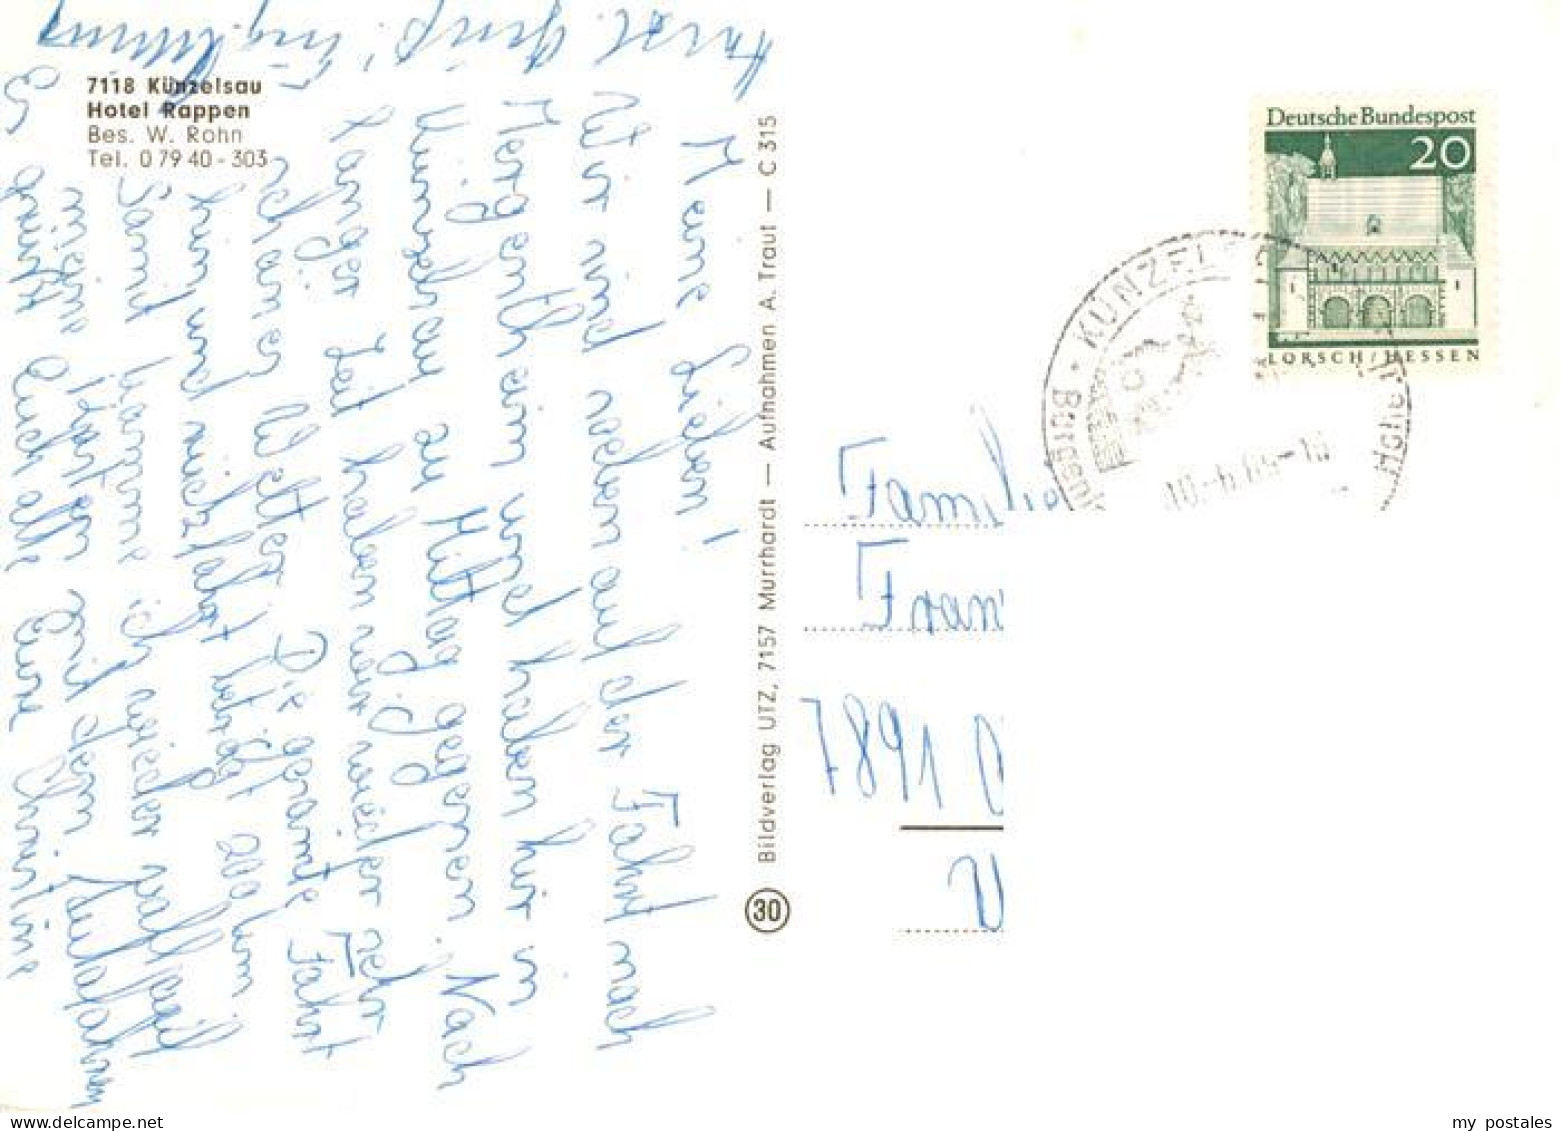 7118 Künzelsau
Hotel Rappen
Bes. W. Rohn
Tel. 0 79 40 - 303
Meine Lieben!
Wir sind soeben auf der Fahrt nach
Mergentheim und haben hier in
Künzelsau zu Mittag gegessen. Nach
langer Zeit haben wir wieder sehr
schönes Wetter. Die gesamte Fahrt
hin und zurück beträgt 200 km
Somit komme ich wieder
meine Karten mit dem
Es grüßt Euch alle Eure Christine
Herzl. Grüße!
Bildverlag UTZ, 7157 Murrhardt — Aufnahmen A. Traut — C 315
30
Deutsche Bundespost
20
LORSCH/HESSEN
KÜNZELS
Familie
Fran
7891
my postales